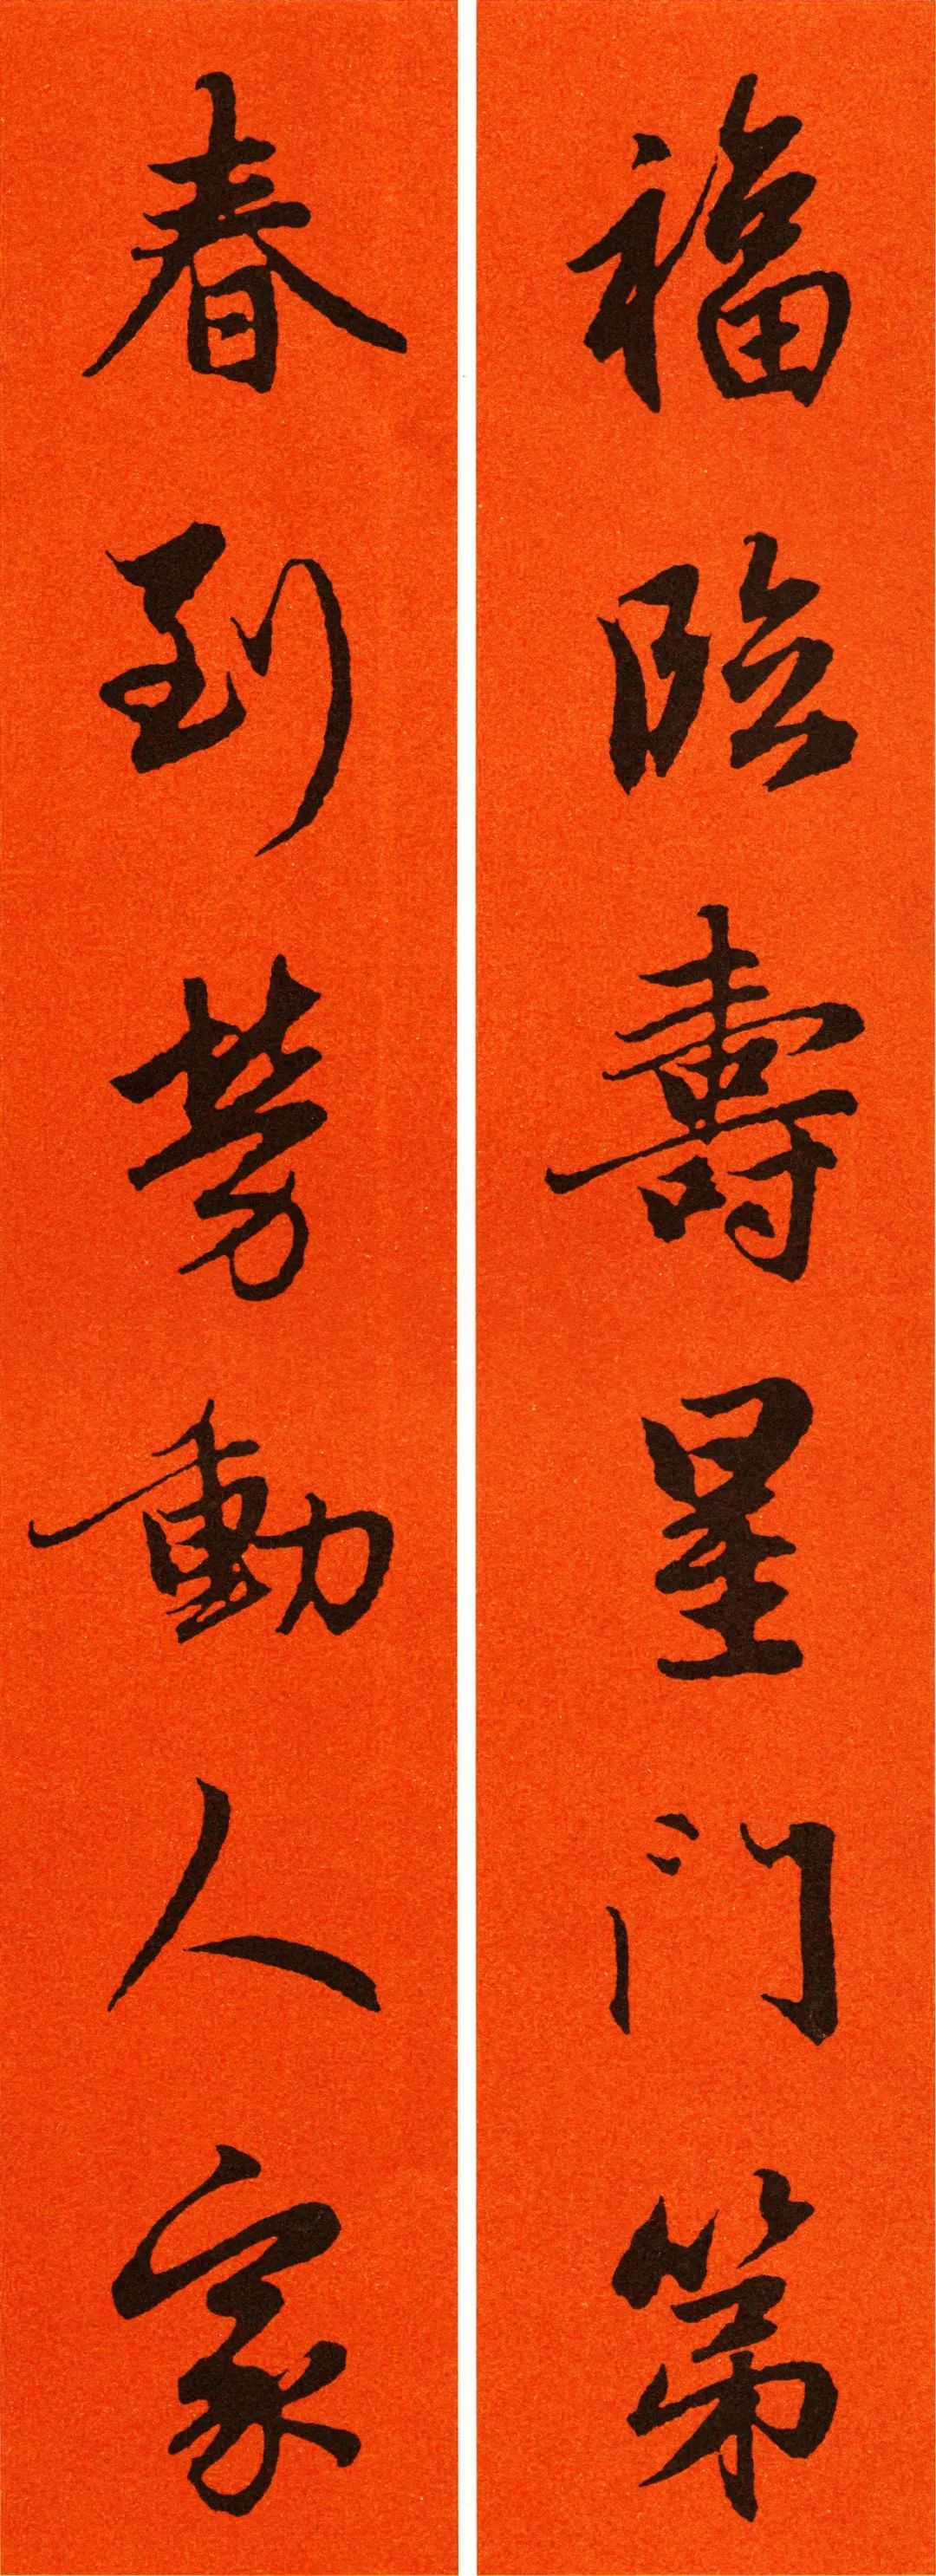 福臨壽星门第
春到勞動人家